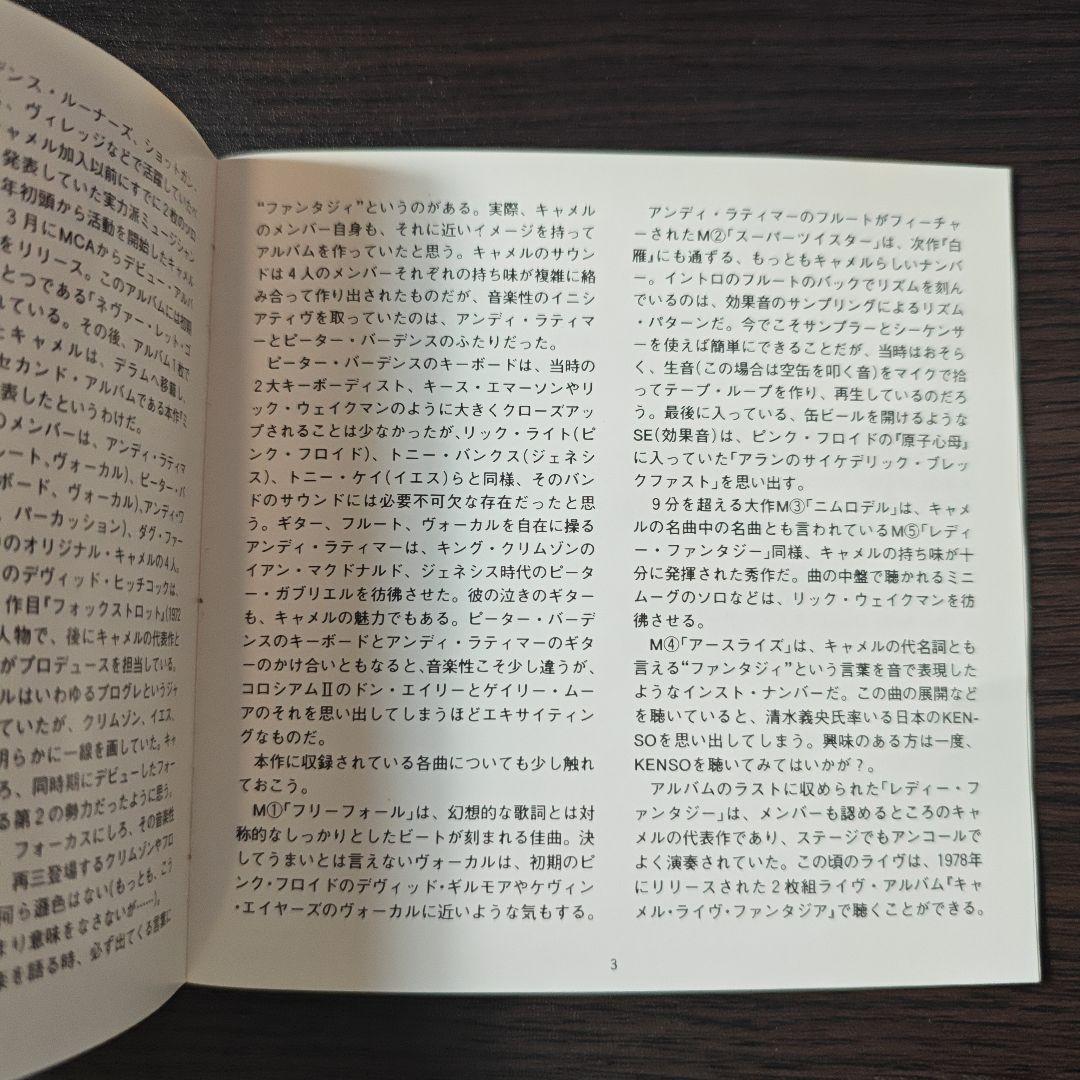 デンス・ルーナーズ、ショットガン・
、ヴィレッジなどで活躍していた
ャメル加入以前にすでに2枚のソロ
発表していた実力派ミュージシャン
年初頭から活動を開始したキャメル
3月にMCAからデビュー・アルバ
をリリース。このアルバムには初期
とつである「ネヴァー・レット・ゴ
れている。その後、アルバム1枚で
たキャメルは、デラムへ移籍し、
セカンド・アルバムである本作『ミ
表したというわけだ。
のメンバーは、アンディ・ラティマ
ルート、ヴォーカル)、ピーター・バ
ボード、ヴォーカル)、アンディ・ワ
、パーカッション)、ダグ・ファー
のオリジナル・キャメルの4人。
のデヴィッド・ヒッチコックは、
作目『フォックストロット』(1972
人物で、後にキャメルの代表作と
がプロデュースを担当している。
ルはいわゆるプログレというジャ
ていたが、クリムゾン、イエス、
明らかに一線を画していた。キャ
ろ、同時期にデビューしたフォー
る第2の勢力だったように思う。
フォーカスにしろ、その音楽性
再三登場するクリムゾンやフロ
何ら遜色はない(もっとも、こう
まり意味をなさないが……)。
を語る時、必ず出てくる言葉に
“ファンタジィ”というのがある。実際、キャメル
のメンバー自身も、それに近いイメージを持って
アルバムを作っていたと思う。キャメルのサウン
ドは4人のメンバーそれぞれの持ち味が複雑に絡
み合って作り出されたものだが、音楽性のイニシ
アティヴを取っていたのは、アンディ・ラティマ
ーとピーター・バーデンスのふたりだった。
ピーター・バーデンスのキーボードは、当時の
2大キーボーディスト、キース・エマーソンやリ
ック・ウェイクマンのように大きくクローズアッ
プされることは少なかったが、リック・ライト(ピ
ンク・フロイド)、トニー・バンクス(ジェネシ
ス)、トニー・ケイ(イエス)らと同様、そのバン
ドのサウンドには必要不可欠な存在だったと思
う。ギター、フルート、ヴォーカルを自在に操る
アンディ・ラティマーは、キング・クリムゾンの
イアン・マクドナルド、ジェネシス時代のピータ
ー・ガブリエルを彷彿させる。彼の泣きのギター
も、キャメルの魅力でもある。ピーター・バーデ
ンスのキーボードとアンディ・ラティマーのギタ
ーのかけ合いともなると、音楽性こそ少し違うが、
コロシアムⅡのドン・エイリーとゲイリー・ムー
アのそれを思い出してしまうほどエキサイティン
グなものだ。
本作に収録されている各曲についても少し触れ
ておこう。
M①「フリーフォール」は、幻想的な歌詞とは対
称的なしっかりとしたビートが刻まれる佳曲。決
してうまいとは言えないヴォーカルは、初期のピ
ンク・フロイドのデヴィッド・ギルモアやケヴィン
・エイヤーズのヴォーカルに近いような気もする。
アンディ・ラティマーのフルートがフィーチャ
ーされたM②「スーパーツイスター」は、次作『白
雁』にも通ずる、もっともキャメルらしいナンバ
ー。イントロのフルートのバックでリズムを刻ん
でいるのは、効果音のサンプリングによるリズム
・パターンだ。今でこそサンプラーとシーケンサ
ーを使えば簡単にできることだが、当時はおそら
く、生音(この場合は空缶を叩く音)をマイクで拾
ってテープ・ループを作り、再生しているのだろ
う。最後に入っている、缶ビールを開けるような
SE(効果音)は、ピンク・フロイドの『原子心母』
に入っていた「アランのサイケデリック・ブレック
ファスト」を思い出す。
9分を超える大作M③「ニムロデル」は、キャメ
ルの名曲中の名曲とも言われているM⑤「レディ
ー・ファンタジー」同様、キャメルの持ち味が十
分に発揮された秀作だ。曲の中盤で聴かれるミニ
ムーグのソロなどは、リック・ウェイクマンを彷
彿させる。
M④「アースライズ」は、キャメルの代名詞とも
言える“ファンタジィ”という言葉を音で表現した
ようなインスト・ナンバーだ。この曲の展開など
を聴いていると、清水義央氏率いる日本のKEN-
SOを思い出してしまう。興味のある方は一度、
KENSOを聴いてみてはいかが?。
アルバムのラストに収められた「レディー・フ
ァンタジー」は、メンバーも認めるところのキャ
メルの代表作であり、ステージでもアンコールで
よく演奏されていた。この頃のライヴは、1978年
にリリースされた2枚組ライヴ・アルバム『キャ
メル・ライヴ・ファンタジア』で聴くことができる。
3